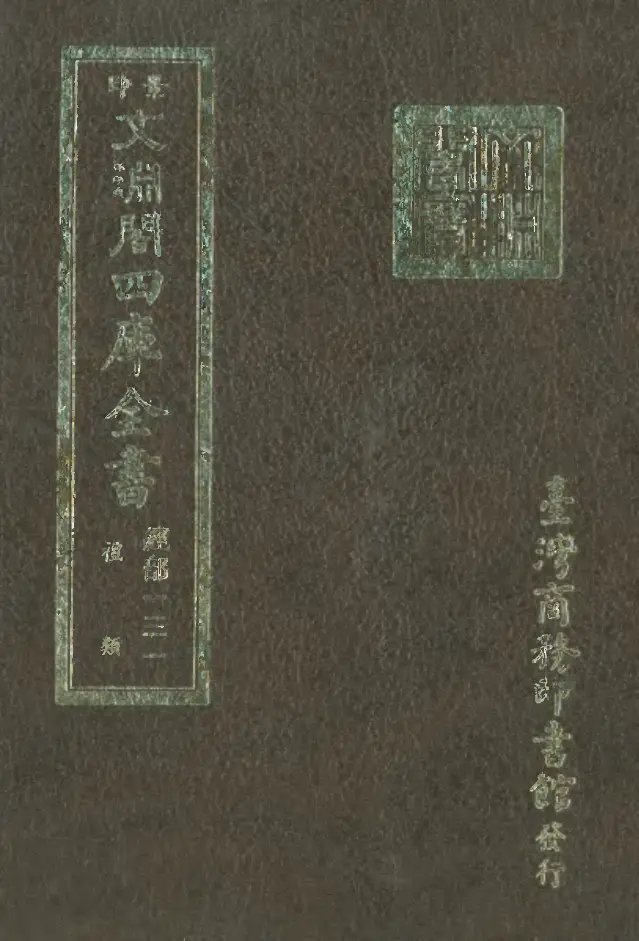 景印
文淵閣四庫全書
經部一三一
禮類
臺灣商務印書館發行